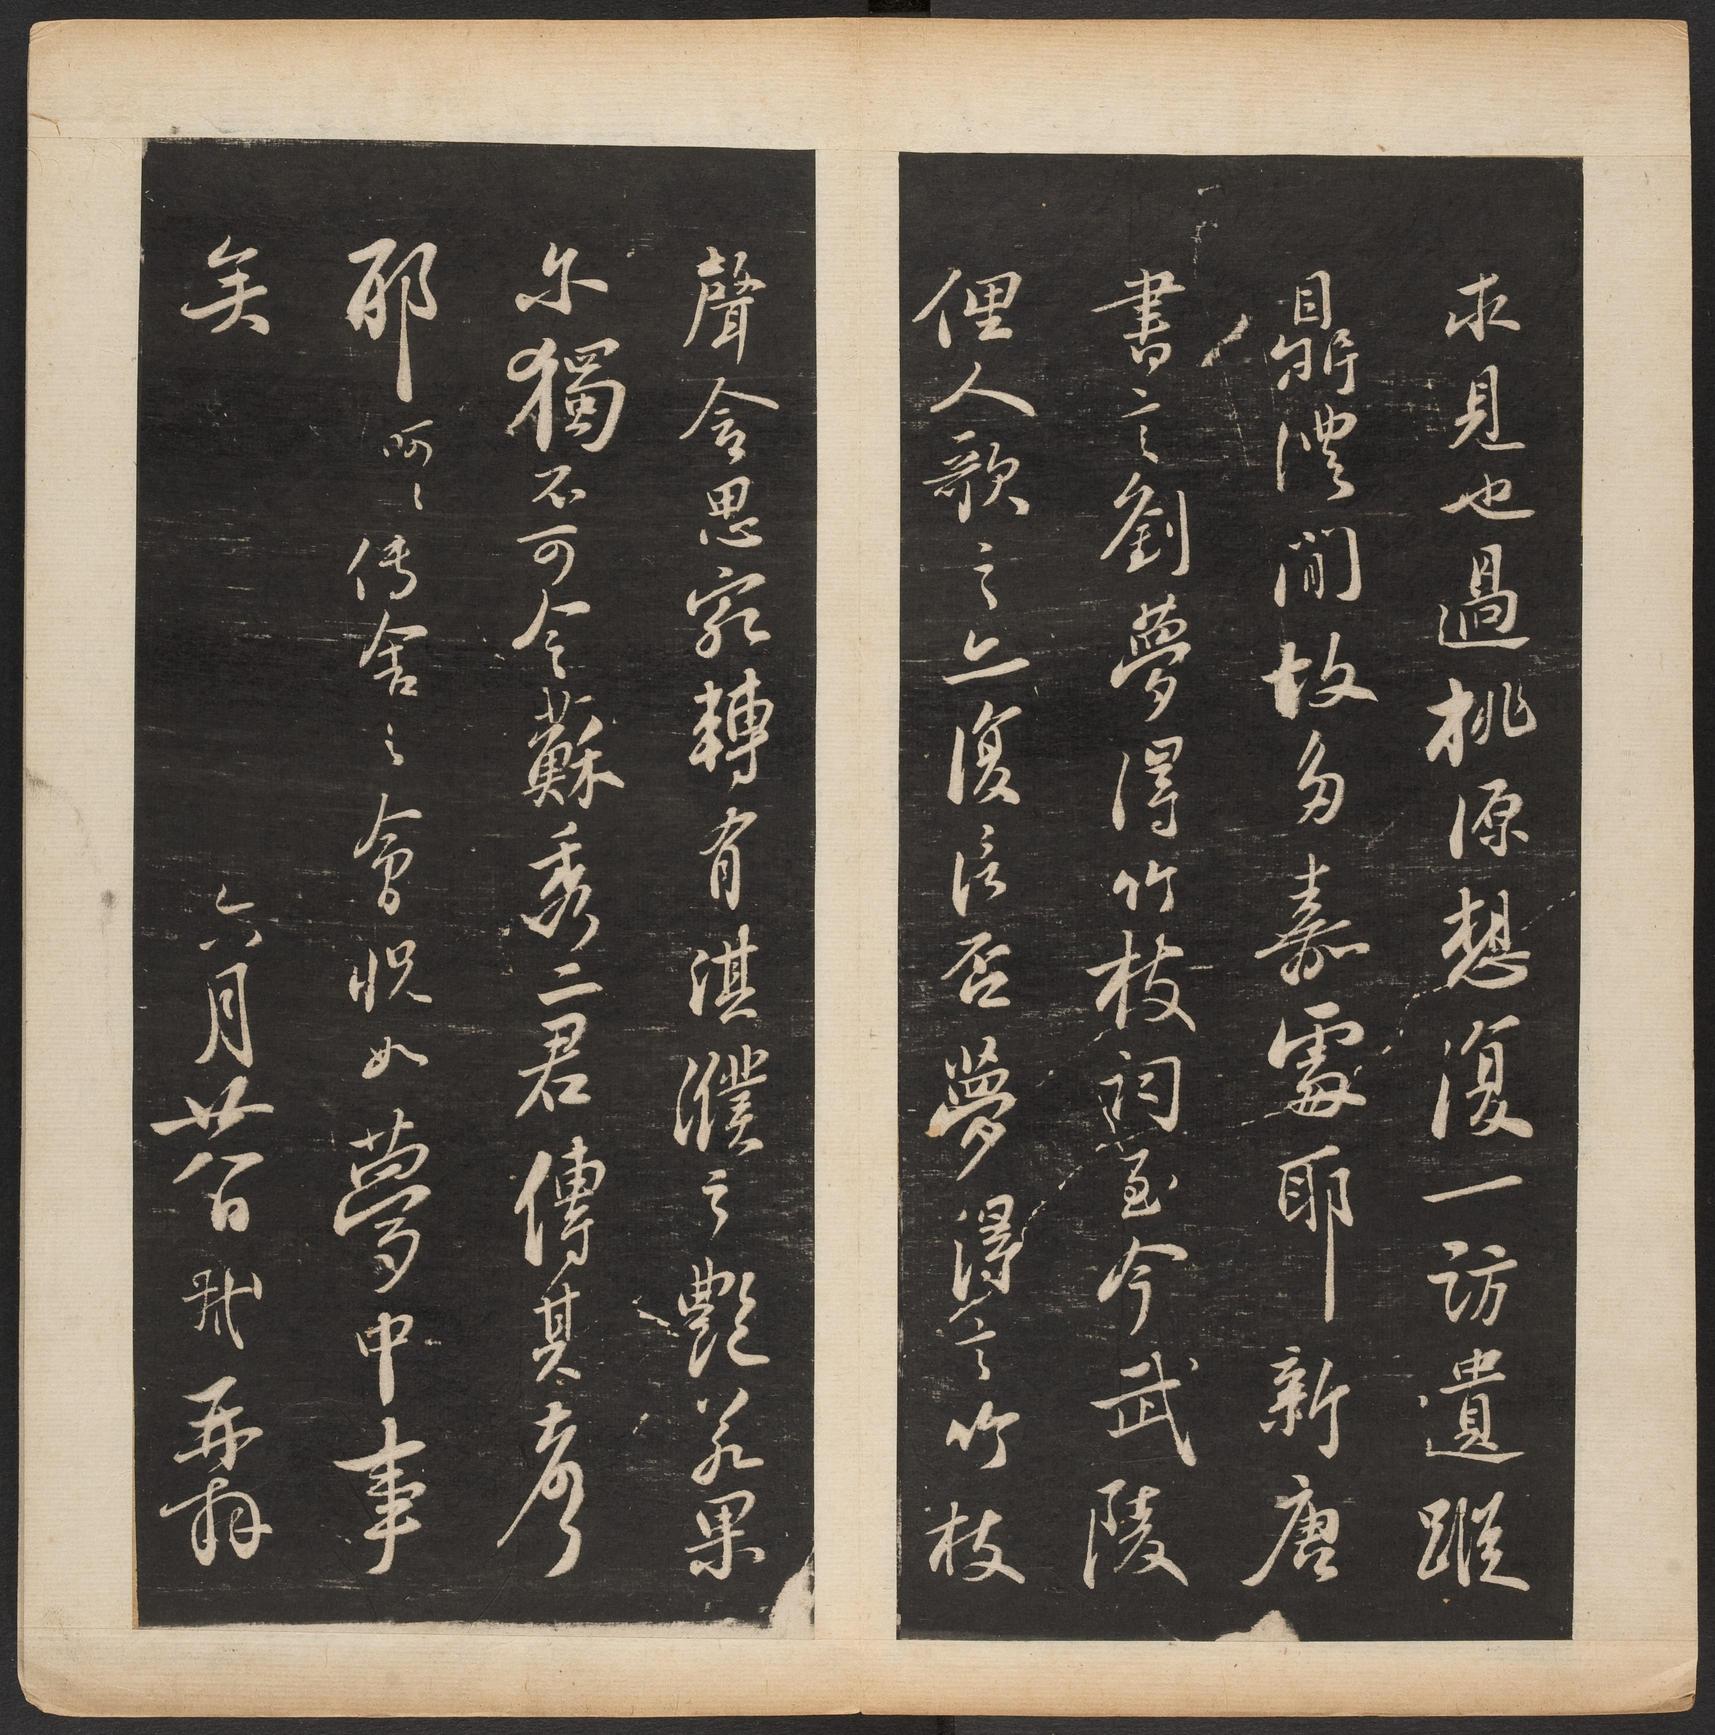 求見也過桃源想復一訪遺蹤
鼎澧間故多嘉處耶新唐
書言劉夢得竹枝詞至今武陵
俚人歌之亦復信否夢得言竹枝
聲含思宛轉有淇濮之艷若果
尔獨不可令蘇秀二君傳其彥
耶呵呵傳舍之會怳如夢中事
矣
六月廿八日軾再拜